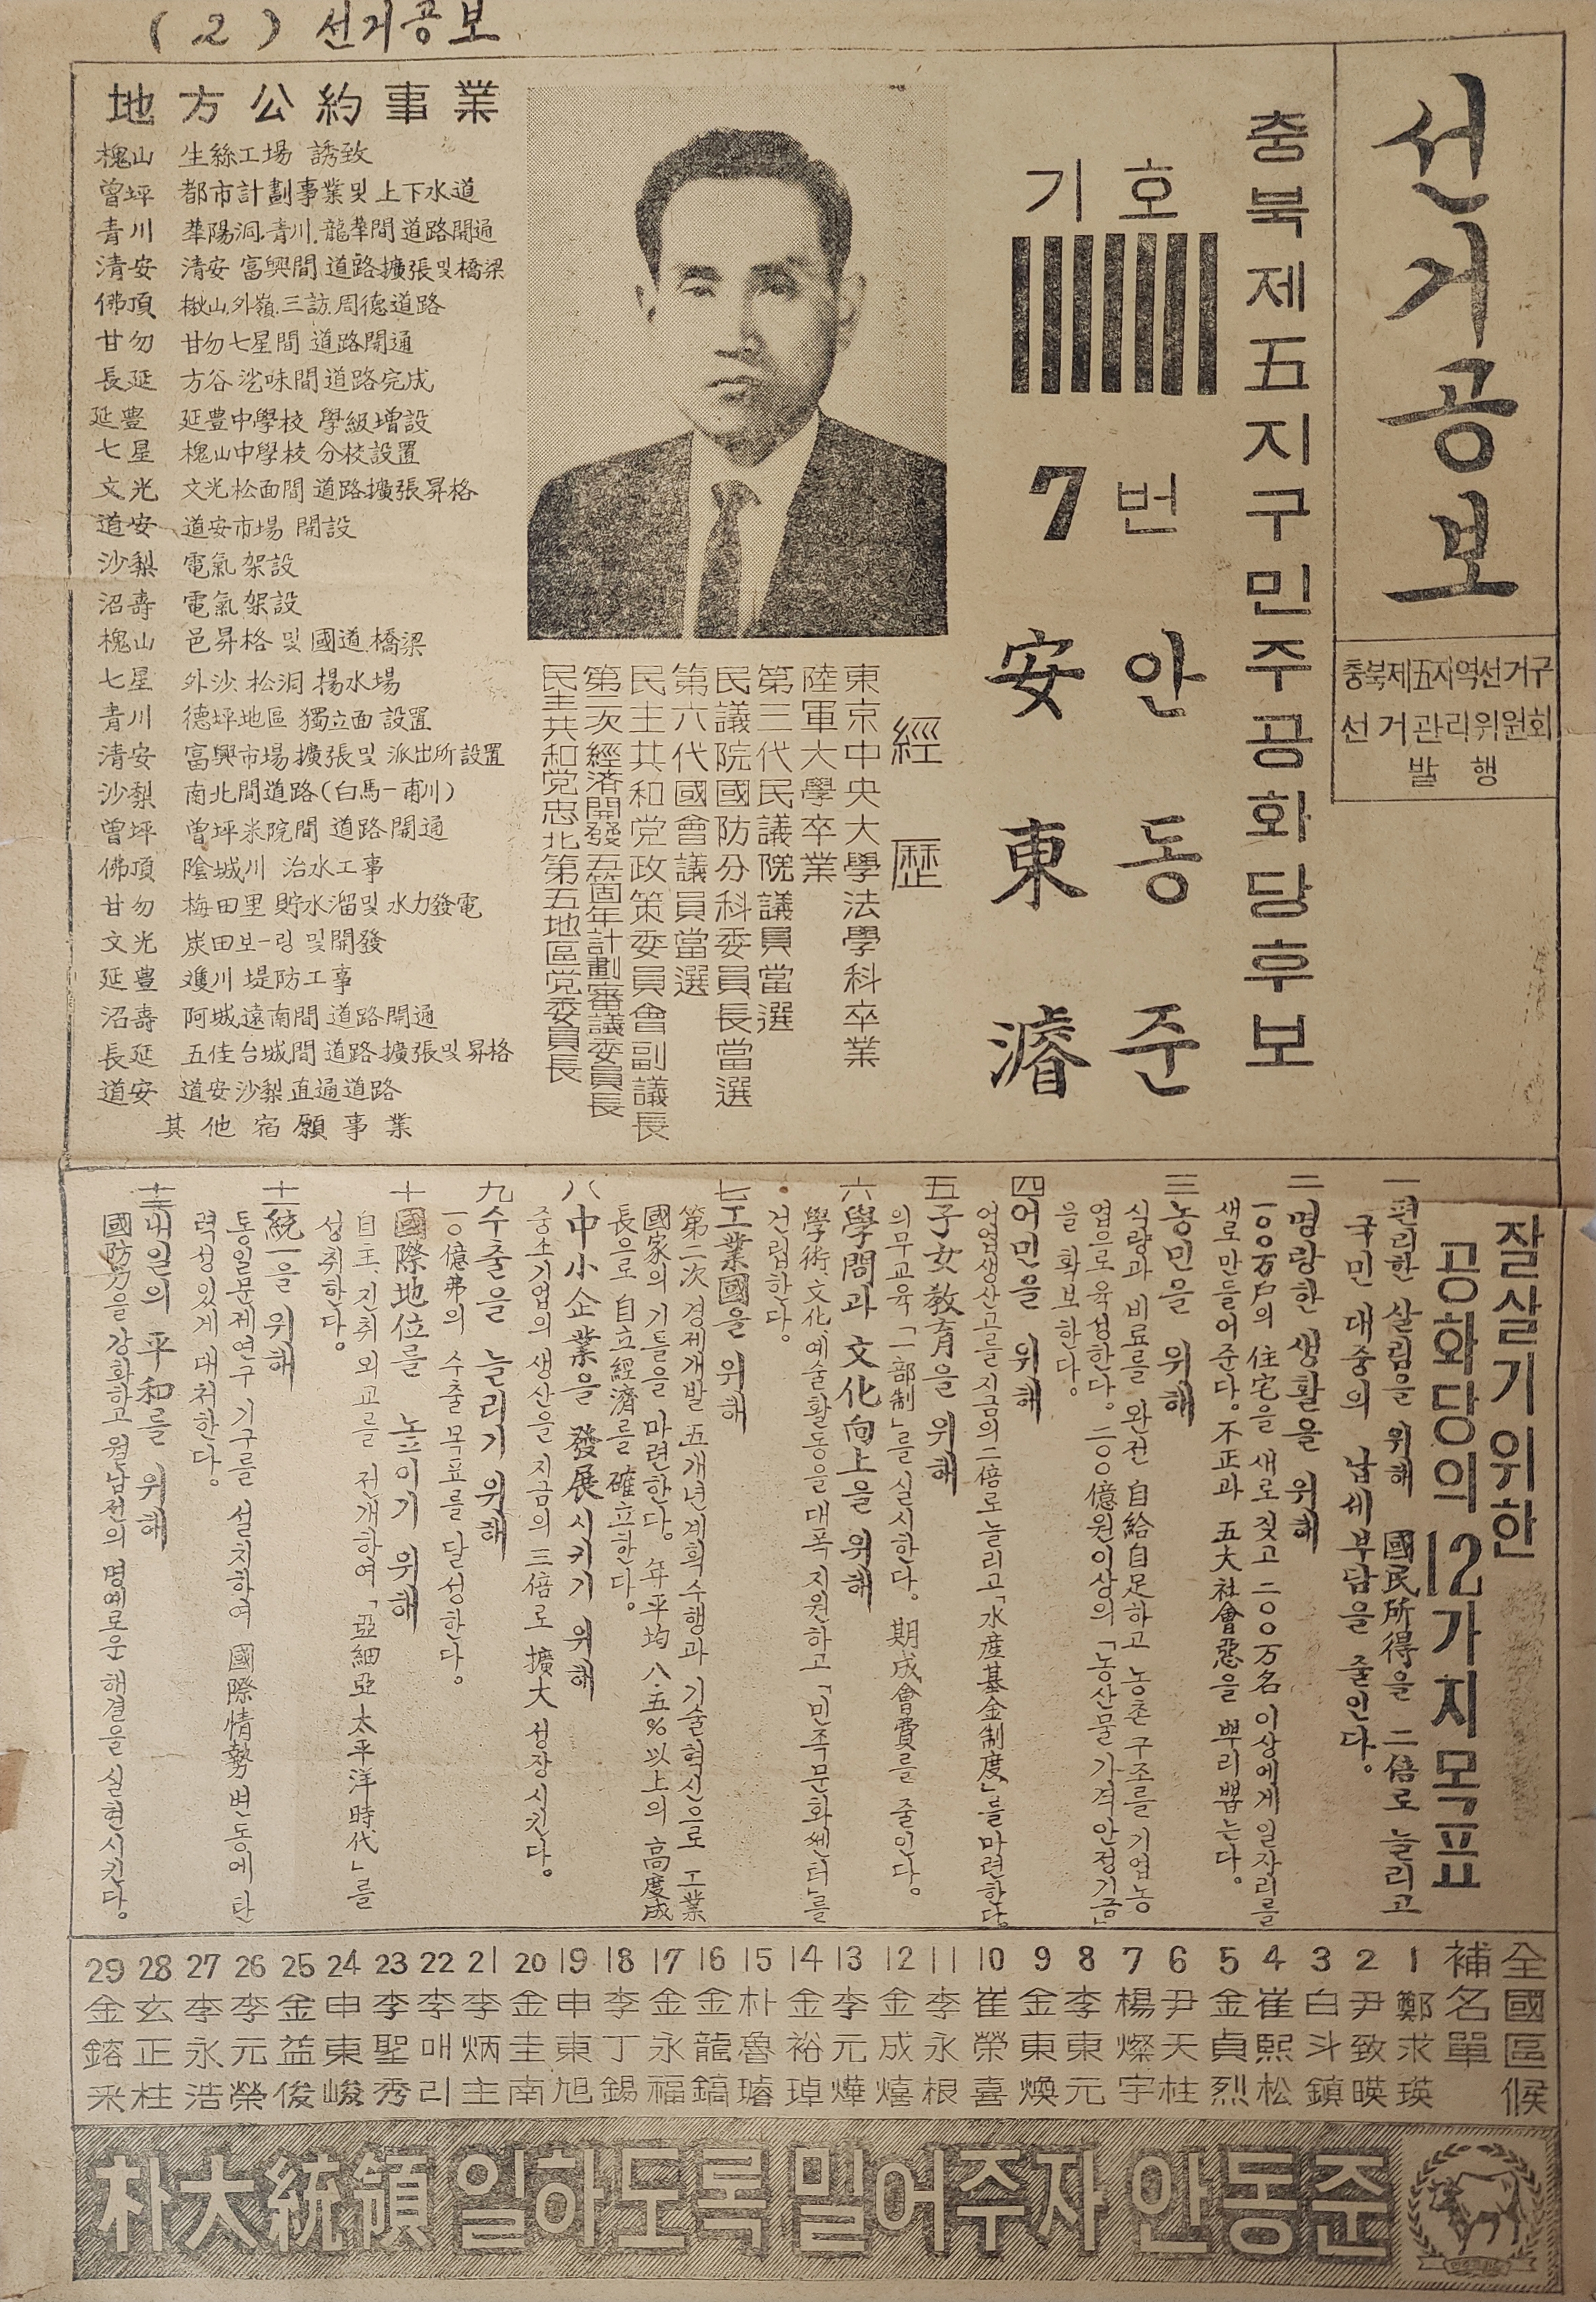 (2) 선거공보
선거공보
충북제五지역선거구
선거관리위원회
발행
충북제五지구민주공화당후보
기호
7번
안동준
安東濬
經歷
東京中央大學法學科卒業
陸軍大學卒業
第三代民議院議員當選
民議院國防分科委員長當選
第六代國會議員當選
民主共和党政策委員會副議長
第二次經済開發五個年計劃審議委員長
民主共和党忠北第五地區党委員長
地方公約事業
槐山 生絲工場 誘致
曾坪 都市計劃事業및 上下水道
青川 華陽洞.青川.龍華間 道路開通
清安 清安 富興間 道路擴張및橋梁
佛頂 楸山.外嶺.三訪.周德道路
甘勿 甘勿七星間 道路開通
長延 方谷 間道路完成
延豊 延豊中學校 學級増設
七星 槐山中學校 分校設置
文光 文光松面間 道路擴張昇格
道安 道安市場 開設
沙梨 電氣架設
沼壽 電氣架設
槐山 邑昇格 및 國道.橋梁
七星 外沙.松洞 揚水場
青川 德坪地區 獨立面 設置
清安 富興市場擴張및 派出所設置
沙梨 南北間道路(白馬-甫川)
曾坪 曾坪米院間 道路開通
佛頂 陰城川 治水工事
甘勿 梅田里 貯水溜및 水力發電
文光 炭田보-링 및開發
延豊 川堤防工事
沼壽 阿城遠南間 道路開通
長延 五佳台城間 道路擴張및昇格
道安 道安沙梨直通道路
其他宿願事業
잘살기 위한
공화당의 12가지 목표
一 편리한 살림을 위해 國民所得을 二倍로 늘리고
국민 대중의 납세부담을 줄인다。
二 명랑한 생활을 위해
一○○万戶의 住宅을 새로짓고 二○○万名 이상에게 일자리를
새로 만들어준다。不正과 五大社會惡을 뿌리뽑는다。
三 농민을 위해
식량과 비료를 완전 自給自足하고 농촌 구조를 기업농
업으로 육성한다。二○○億원이상의 「농산물 가격안정기금」
을 확보한다。
四 어민을 위해
어업생산고를 지금의 二倍로 늘리고 「水産基金制度」를 마련한다。
五 子女敎育을 위해
의무교육 「一部制」를 실시한다。期成會費를 줄인다。
六 學問과 文化向上을 위해
學術、文化、예술활동을 대폭 지원하고 「민족문화쎈터」를
건립한다。
七 工業國을 위해
第二次 경제개발 五개년계획수행과 기술혁신으로 工業
國家의 기틀을 마련한다。年平均 八・五%以上의 高度成
長으로 自立經濟를 確立한다。
八 中小企業을 發展시키기 위해
중소기업의 생산을 지금의 三倍로 擴大 성장시킨다。
九 수출을 늘리기 위해
一○億弗의 수출 목표를 달성한다。
十 國際地位를 높이기 위해
自主、진취외교를 전개하여 「亞細亞太平洋時代」를
성취한다。
十一 統一을 위해
통일문제연구 기구를 설치하여 國際情勢 변동에 탄
력성있게 대처한다。
十二 내일의 平和를 위해
國防力을 강화하고 월남전의 명예로운 해결을 실현시킨다。
全國區候補名單
1 鄭求瑛
2 尹致暎
3 白斗鎮
4 崔熙松
5 金貞烈
6 尹天柱
7 楊燦宇
8 李東元
9 金東煥
10 崔榮喜
11 李永根
12 金成熺
13 李元燁
14 金裕琸
15 朴魯璿
16 金龍鎬
17 金永福
18 李丁錫
19 申東旭
20 金圭南
21 李炳主
22 李매리
23 李聖秀
24 申東峻
25 金益俊
26 李元榮
27 李永浩
28 玄正柱
29 金鎔采
朴大統領 일하도록 밀어주자 안동준